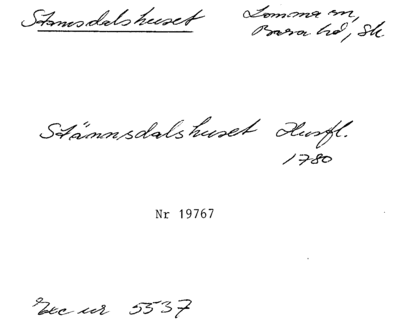 Stamsdalshuset Lomma sn,
Bara hd, Sk.
Stännsdalshuset Husfl.
1780
Nr 19767
Exc nr 5537